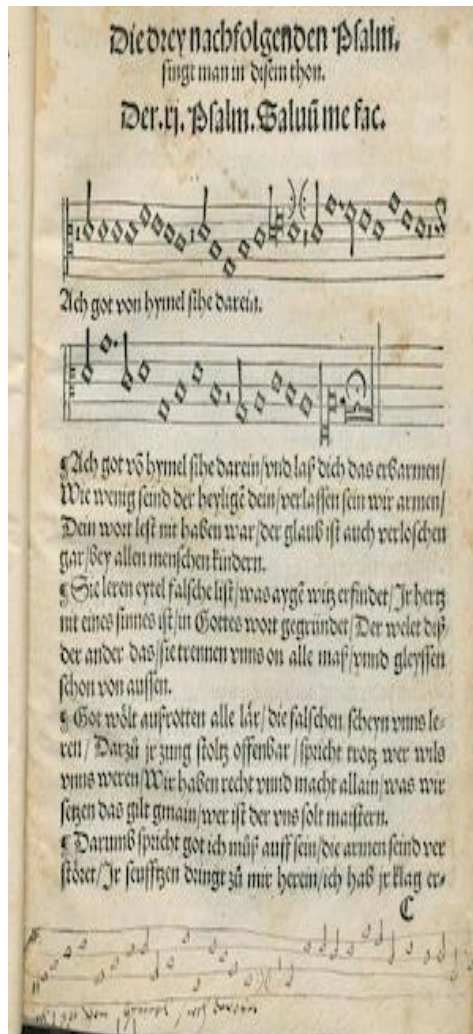 Die drey nachfolgenden Psalm.
singt man in disem thon.
Der .xj. Psalm. Saluū me fac.
Ach got von hymel sihe darein.
¶ Ach got vō hymel sihe darein/ vnd laß dich das erbarmen/
Wie wenig seind der heyligē dein/ verlassen sein wir armen/
Dein wort lest nit haben war/ der glaub ist auch verloschen
gar/ bey allen menschen kindern.
¶ Sie leren eytel falsche list/ was aygē witz erfindet/ Jr hertz
nit eines sinnes ist/ in Gottes wort gegründet/ Der welet diß
der ander das/ sie trennen vnns on alle maß/ vnnd gleyssen
schon von aussen.
¶ Got wölt außrotten alle lär/ die falschen scheyn vnns le-
ren/ Darzů jr zung stoltz offenbar/ spricht trotz wer wils
vnns weren/ Wir haben recht vnnd macht allain/ was wir
setzen das gilt gmain/ wer ist der vns solt maistern.
¶ Darumb spricht got ich můß auff sein/ die armen seind ver
störet/ Jr seufftzen dringt zů mir herein/ ich hab jr klag er-
C